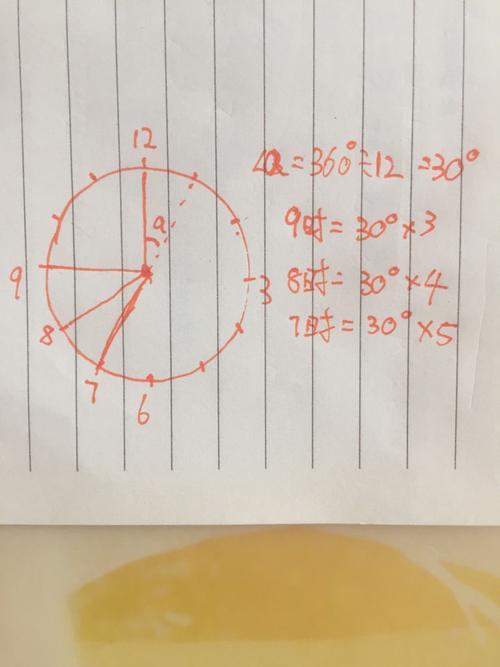 12
a
9
3
8
7
6
∠a=360°÷12=30°
9时=30°×3
8时=30°×4
7时=30°×5